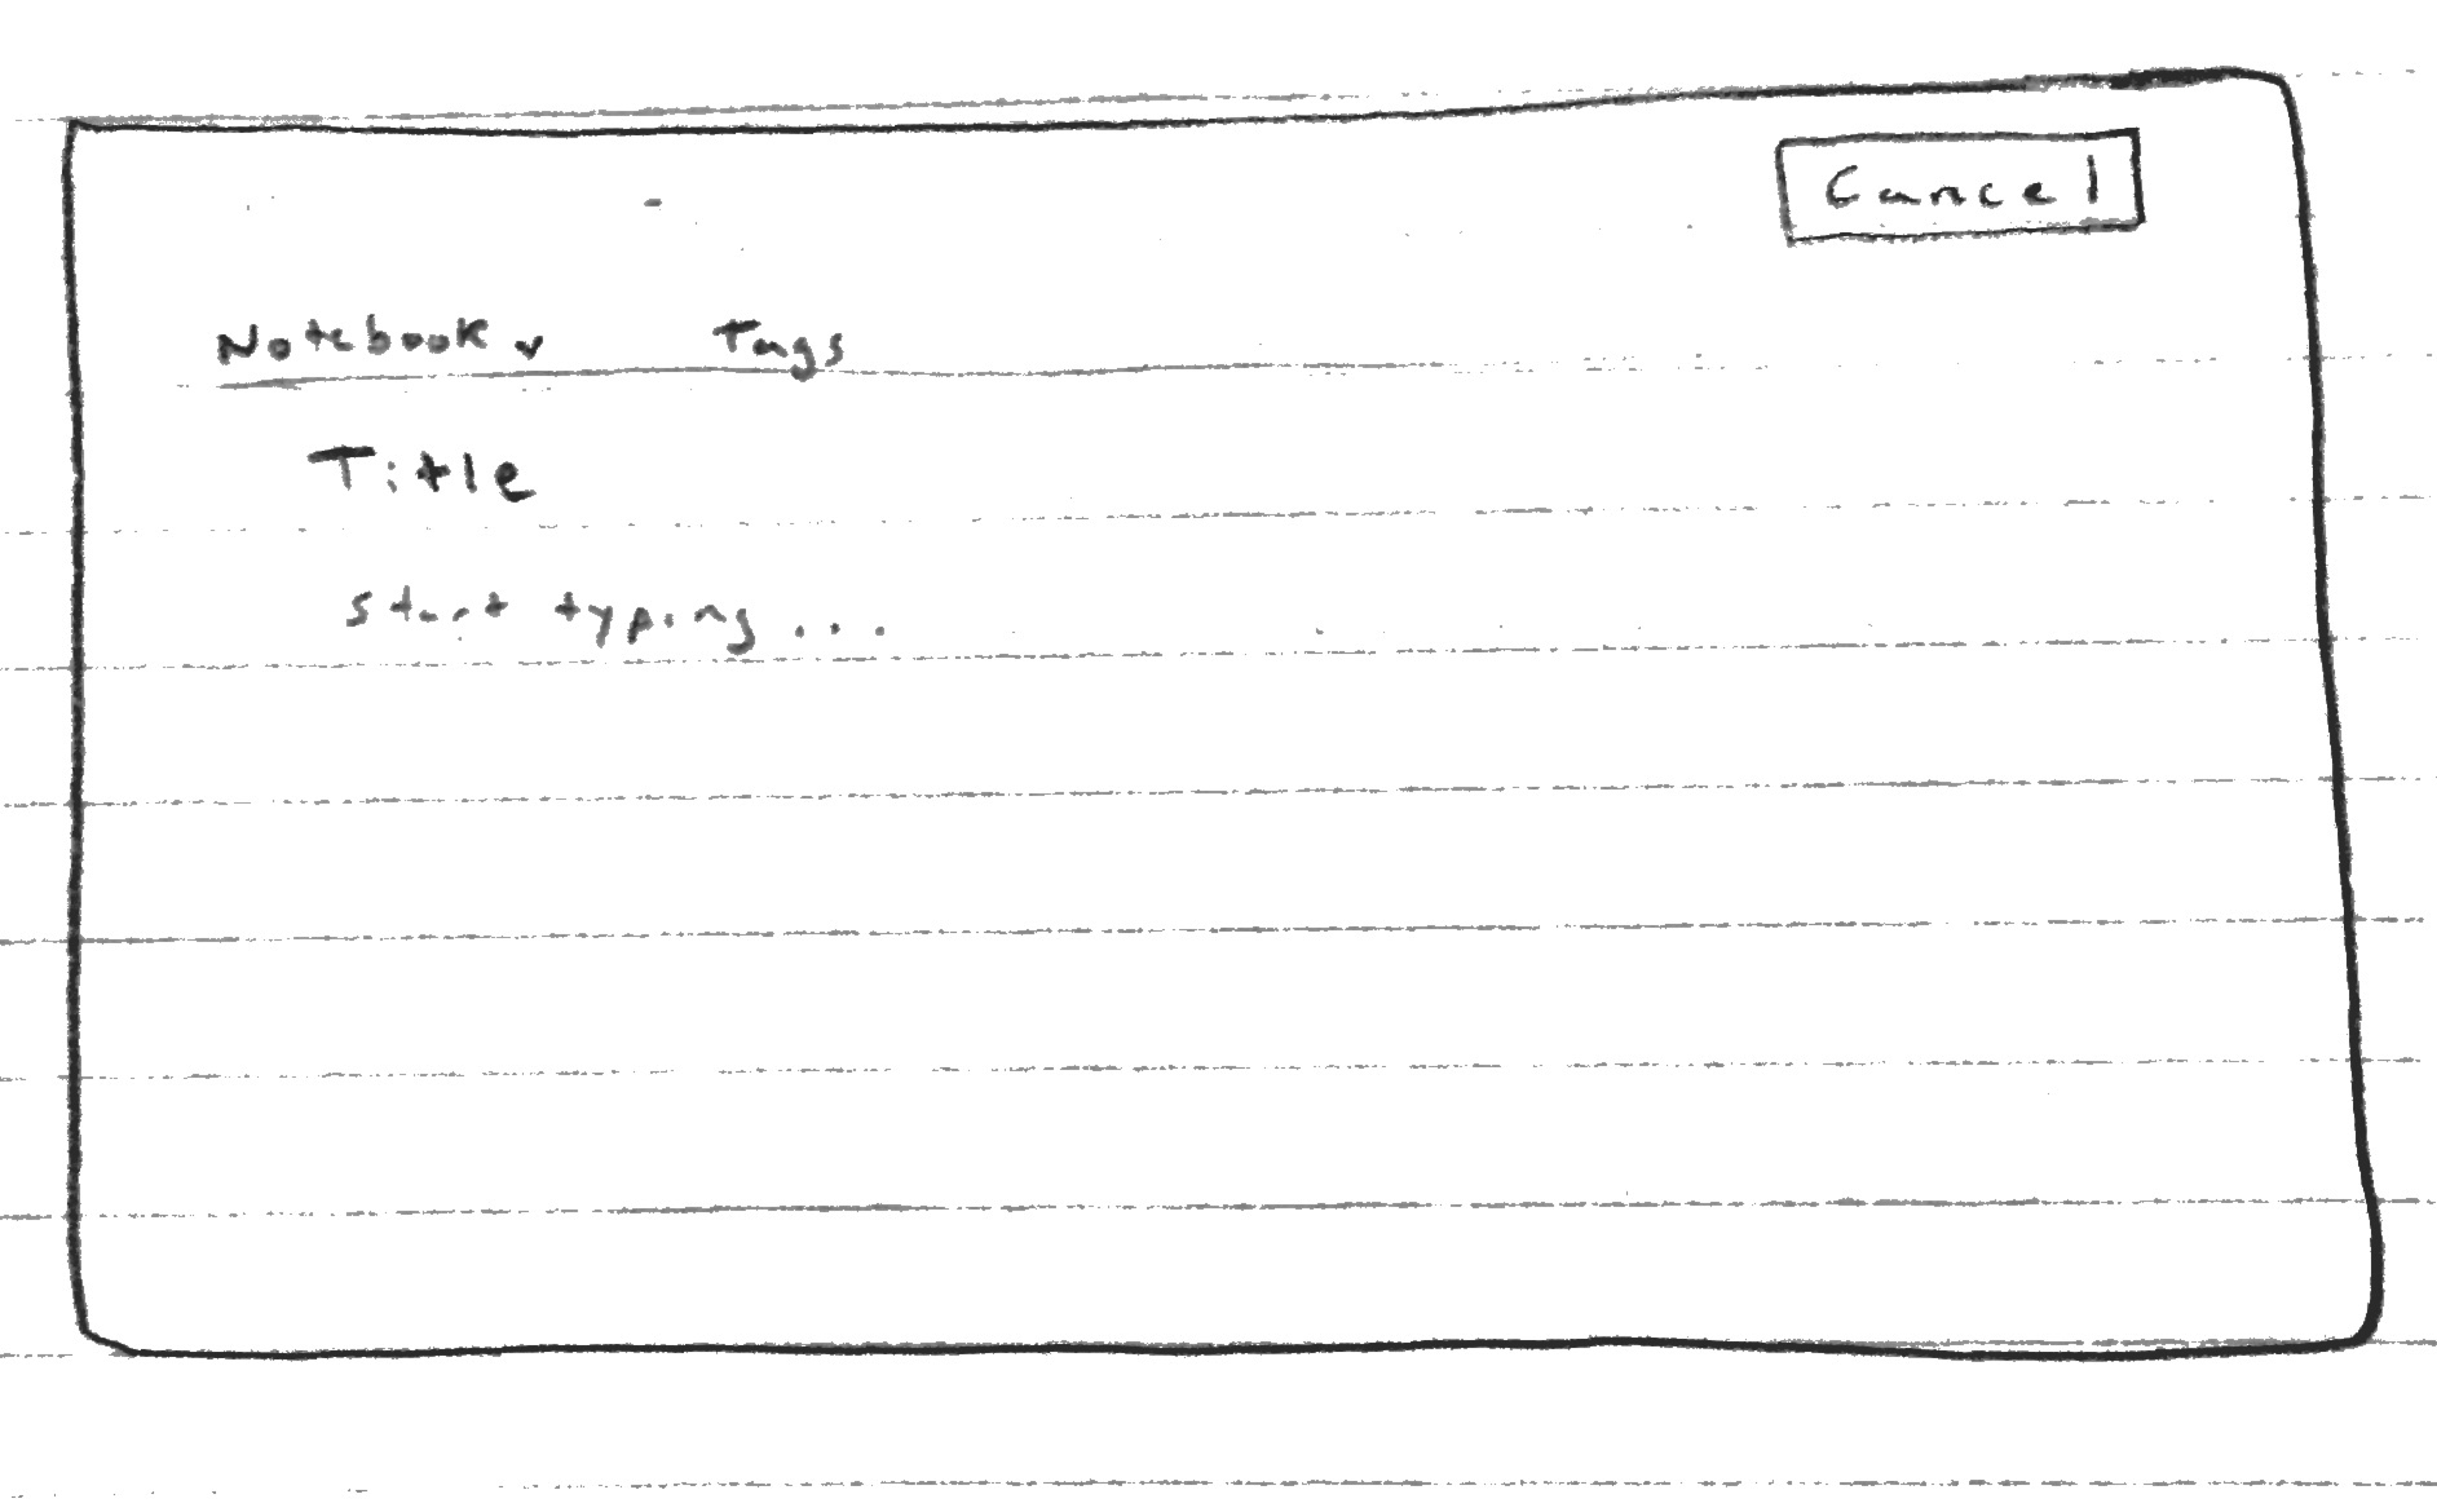 Cancel
Notebook v Tags
Title
Start typing...